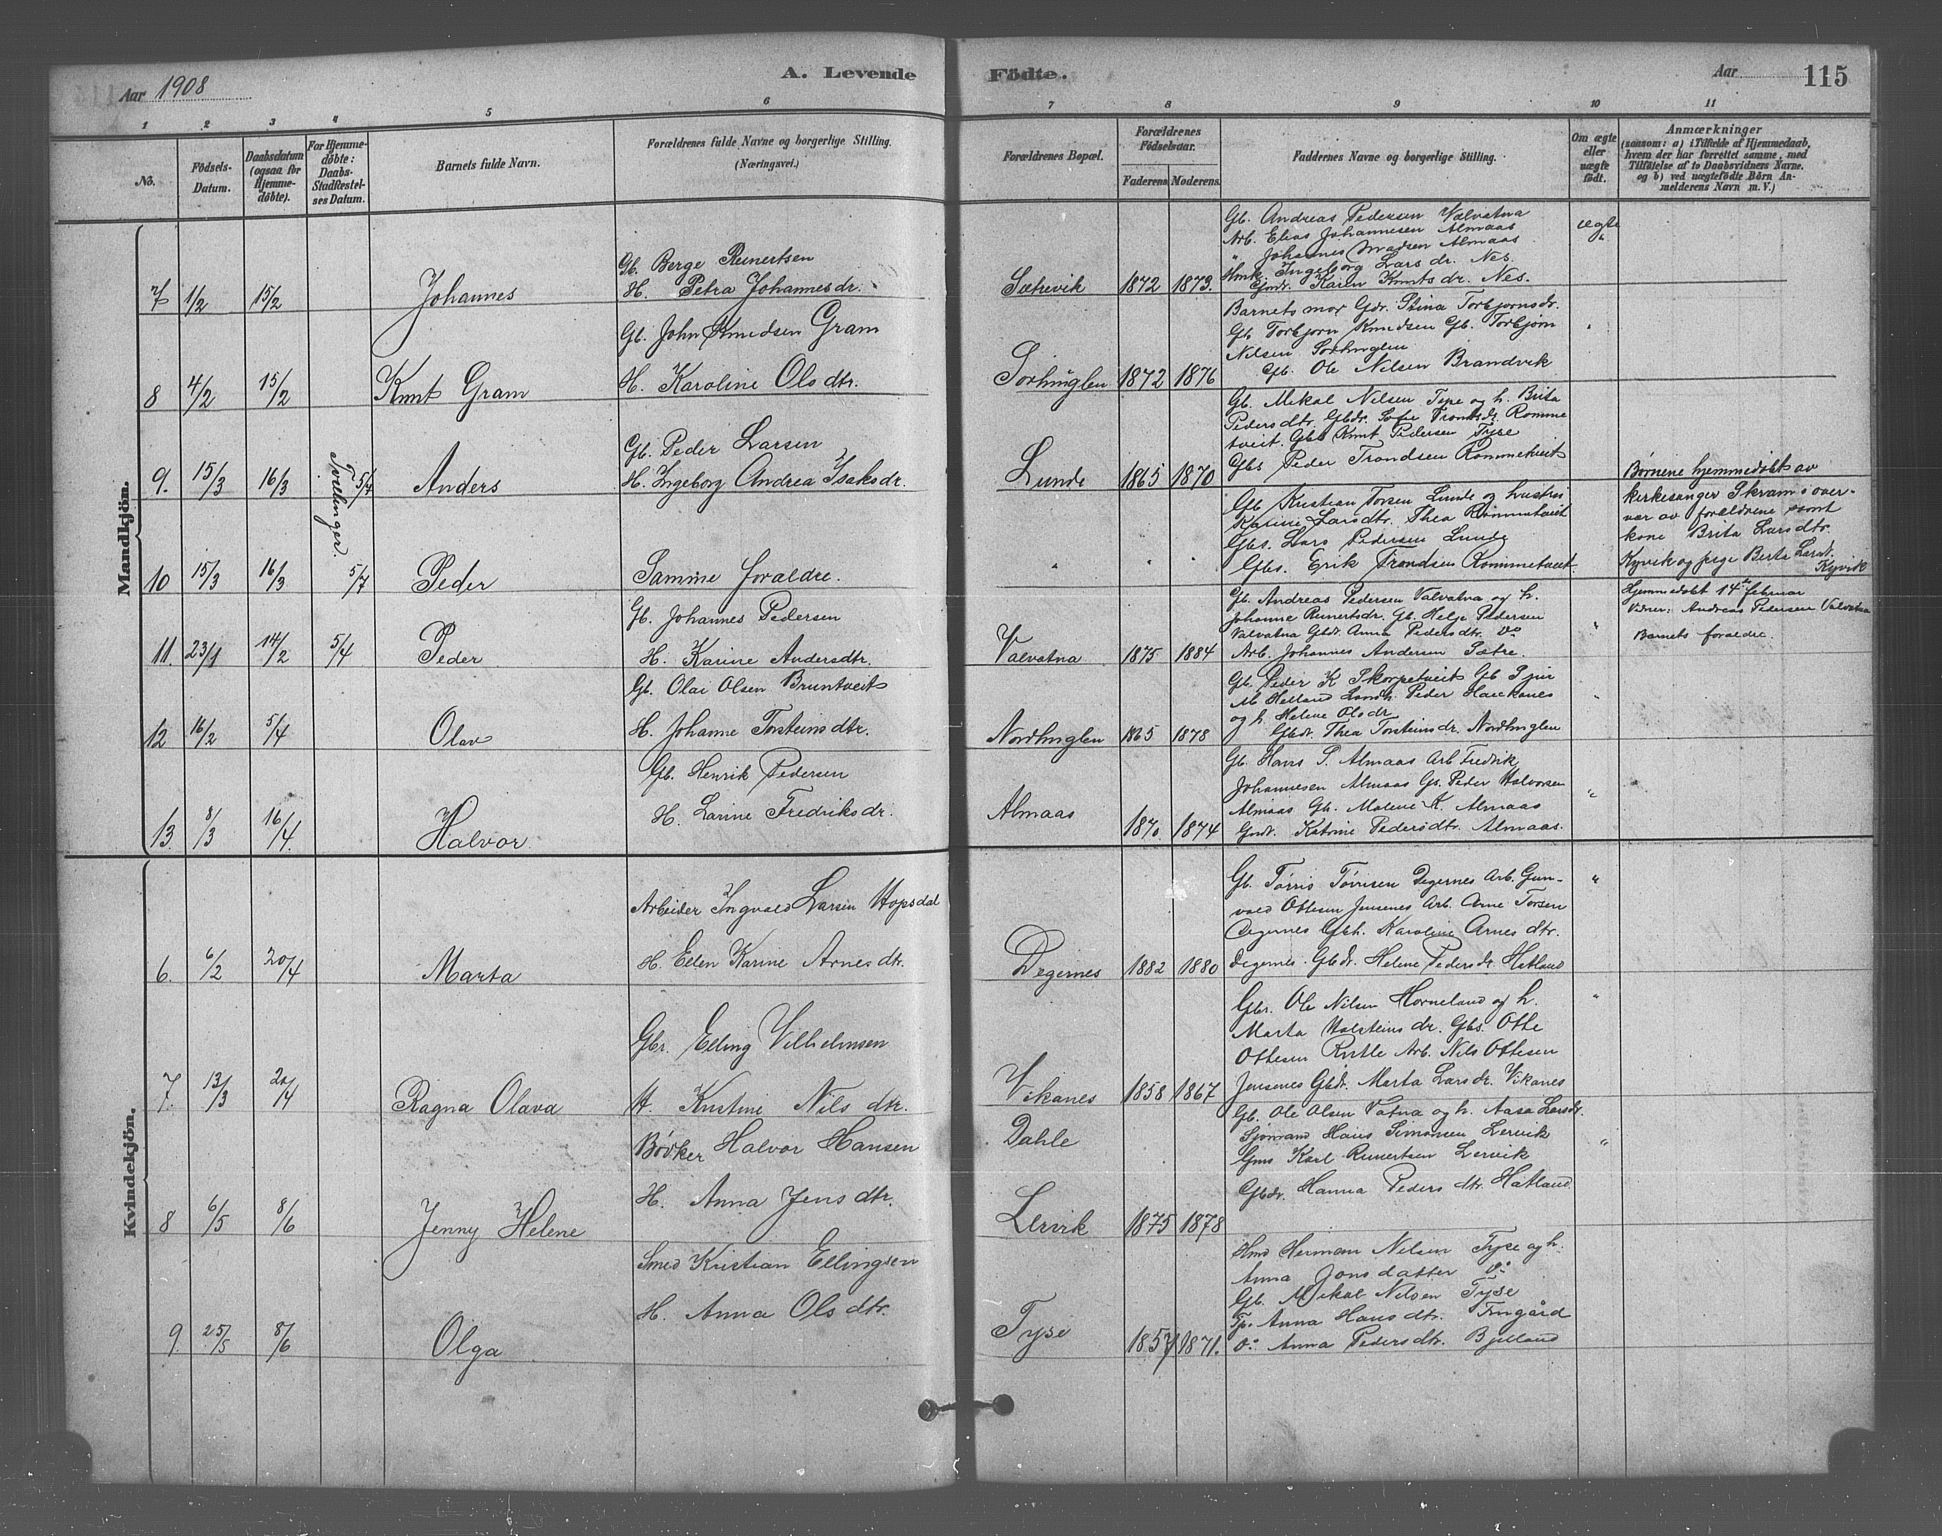 Aar 1908
A. Levende
Födte.
Aar
115
1 2 3 4 5 6 7 8 9 10 11
No.
Födsels-
Datum.
Daabsdatum
(ogsaa for
Hjemme-
døbte).
For Hjemme-
døbte:
Daabs-
Stadfæstel-
ses Datum.
Barnets fulde Navn.
Forældrenes fulde Navne og borgerlige Stilling.
(Næringsvei.)
Forældrenes Bopæl.
Forældrenes
Födselsaar.
Faderens Moderens.
Faddernes Navne og borgerlige Stilling.
Om ægte
eller
uægte
født.
Anmærkninger
(saasom: a) i Tilfælde af Hjemmedaab,
hvem der har forrettet samme, med
Tilføielse af to Daabsvidners Navne.
og b) ved uægtefödte Börn An-
melderens Navn m. V.)
Mandkjön.
7 1/2 15/2 Johannes
Gb. Berge Reinertsen
H. Petra Johannesdr.
Sætrevik 1872 1873.
Gb. Andreas Pedersen Valvatna
Arb. Elias Johannesen Almaas
" Johannes Madsen Almaas
Hmk. Ingeborg Larsdr. Nes.
Gmdr. Karen Knutsdr. Nes.
ægte
"
8 4/2 15/2 Knut Gram
Gb. John Knudsen Gram
H. Karoline Olsdtr.
Sørhuglen 1872 1876
Barnets mor Gdr. Stina Torbjørnsdr.
Gb Torbjørn Knudsen Gb. Torbjørn
Nilsen Sørhuglen
Gb. Ole Nilsen Brandvik
"
9. 15/3 16/3 5/7 Anders
Tvillinger.
Gb. Peder Larsen
H. Ingeborg Andrea Isaksdr.
Lunde 1865 1870
Gb. Mikal Nilsen Tyse og h. Brita
Pedersdtr. Gbdr. Sofie Trondsdr. Romme
tveit. Gbs Knut Pedersen Tyse
Gbs Peder Trondsen Rommetveit
Børnene hjemmedøbt av
kirkesanger Skram i over-
vær av forældrene samt
kone Brita Larsdtr.
Kyvik og pige Berta Larsdt.
Kyvik
10 15/3 16/3 5/7 Peder
Samme forældre.
" " "
Gb Kristian Torsen Lunde og hustru
Karine Larsdtr. Thea Rommetveit
Gbs. Lars Pedersen Lunde
Gbs. Erik Trondsen Rommetveit.
11. 23/1 14/2 5/4 Peder
Gb. Johannes Pedersen
H. Karine Andersdtr.
Valvatna 1875 1884
Gb. Andreas Pedersen Valvatna og h.
Johanne Reinertsdr. Gb. Helje Pedersen
Valvatna Gbdr. Anna Pedersdtr. Do
Arb. Johannes Andersen Sætre.
"
Hjemmedøbt 14de februar
Vidner: Andreas Pedersen Valvatna
Barnets forældre.
12 16/2 5/4 Olav
Gb. Olai Olsen Bruntveit
H. Johanne Torsteinsdtr.
Nordhuglen 1865 1878
Gb. Peder K Skorpetveit Gb
M Helland Landh. Peder
og h. Helene Olsdr
Gbdr. Thea Torsteinsdr. Nordhuglen
"
13. 8/3 16/4. Halvor
Gb. Henrik Pedersen
H. Larine Fredriksdr.
Almaas 1870 1874
Gb. Hans P. Almaas Arb Fredrik
Johannesen Almaas Gs. Peder Halvorsen
Almaas Gh. Malene K. Almaas
Gmdr. Katrine Pedersdtr. Almaas.
"
Kvindekjön.
6. 6/2 20/4 Marta
Arbeider Ingvald Larsen Hopsdal
H. Elen Karine Arnesdtr.
Degernes 1882 1880
Gb. Tørris Tørrisen Degernes Arb. Gun-
vald Ottesen Jensenes Arb. Arne Torsen
Degernes Gbh. Karoline Arnesdtr.
Degernes. Gbdr. Helene Pedersdr Hatland
"
7. 13/3 20/4 Ragna Olava
Gbr. Elling Vilhelmsen
H. Kristine Nilsdtr.
Vikanes 1858 1867
Gbr. Ole Nilsen Horneland og h.
Marta Holsteinsdr. Gbs. Otte
Ottesen Rutle Arb. Nils Ottesen
Jensenes Gbdr. Marta Larsdr. Vikanes
"
8 6/5 8/6 Jenny Helene
Bødker Halvor Hansen
H. Anna Jensdtr.
Dahle
Lervik 1875 1878
Gb. Ole Olsen Vatna og h. Aasa Larsdr.
Sjømand Hans Simonsen Lervik
Gms Karl Reinertsen Lervik
Gbdr. Hanna Pedersdtr. Hatland
"
9. 25/5 8/6 Olga
Smed Kristian Ellingsen
H. Anna Olsdtr.
Tyse 1857 1871.
Hmd Herman Nilsen Tyse og h.
Anna Jonsdatter Do
Gb. Mikal Nilsen Tyse
Tp. Anna Hansdtr. Tungård
Do Anna Pedersdtr. Bjelland